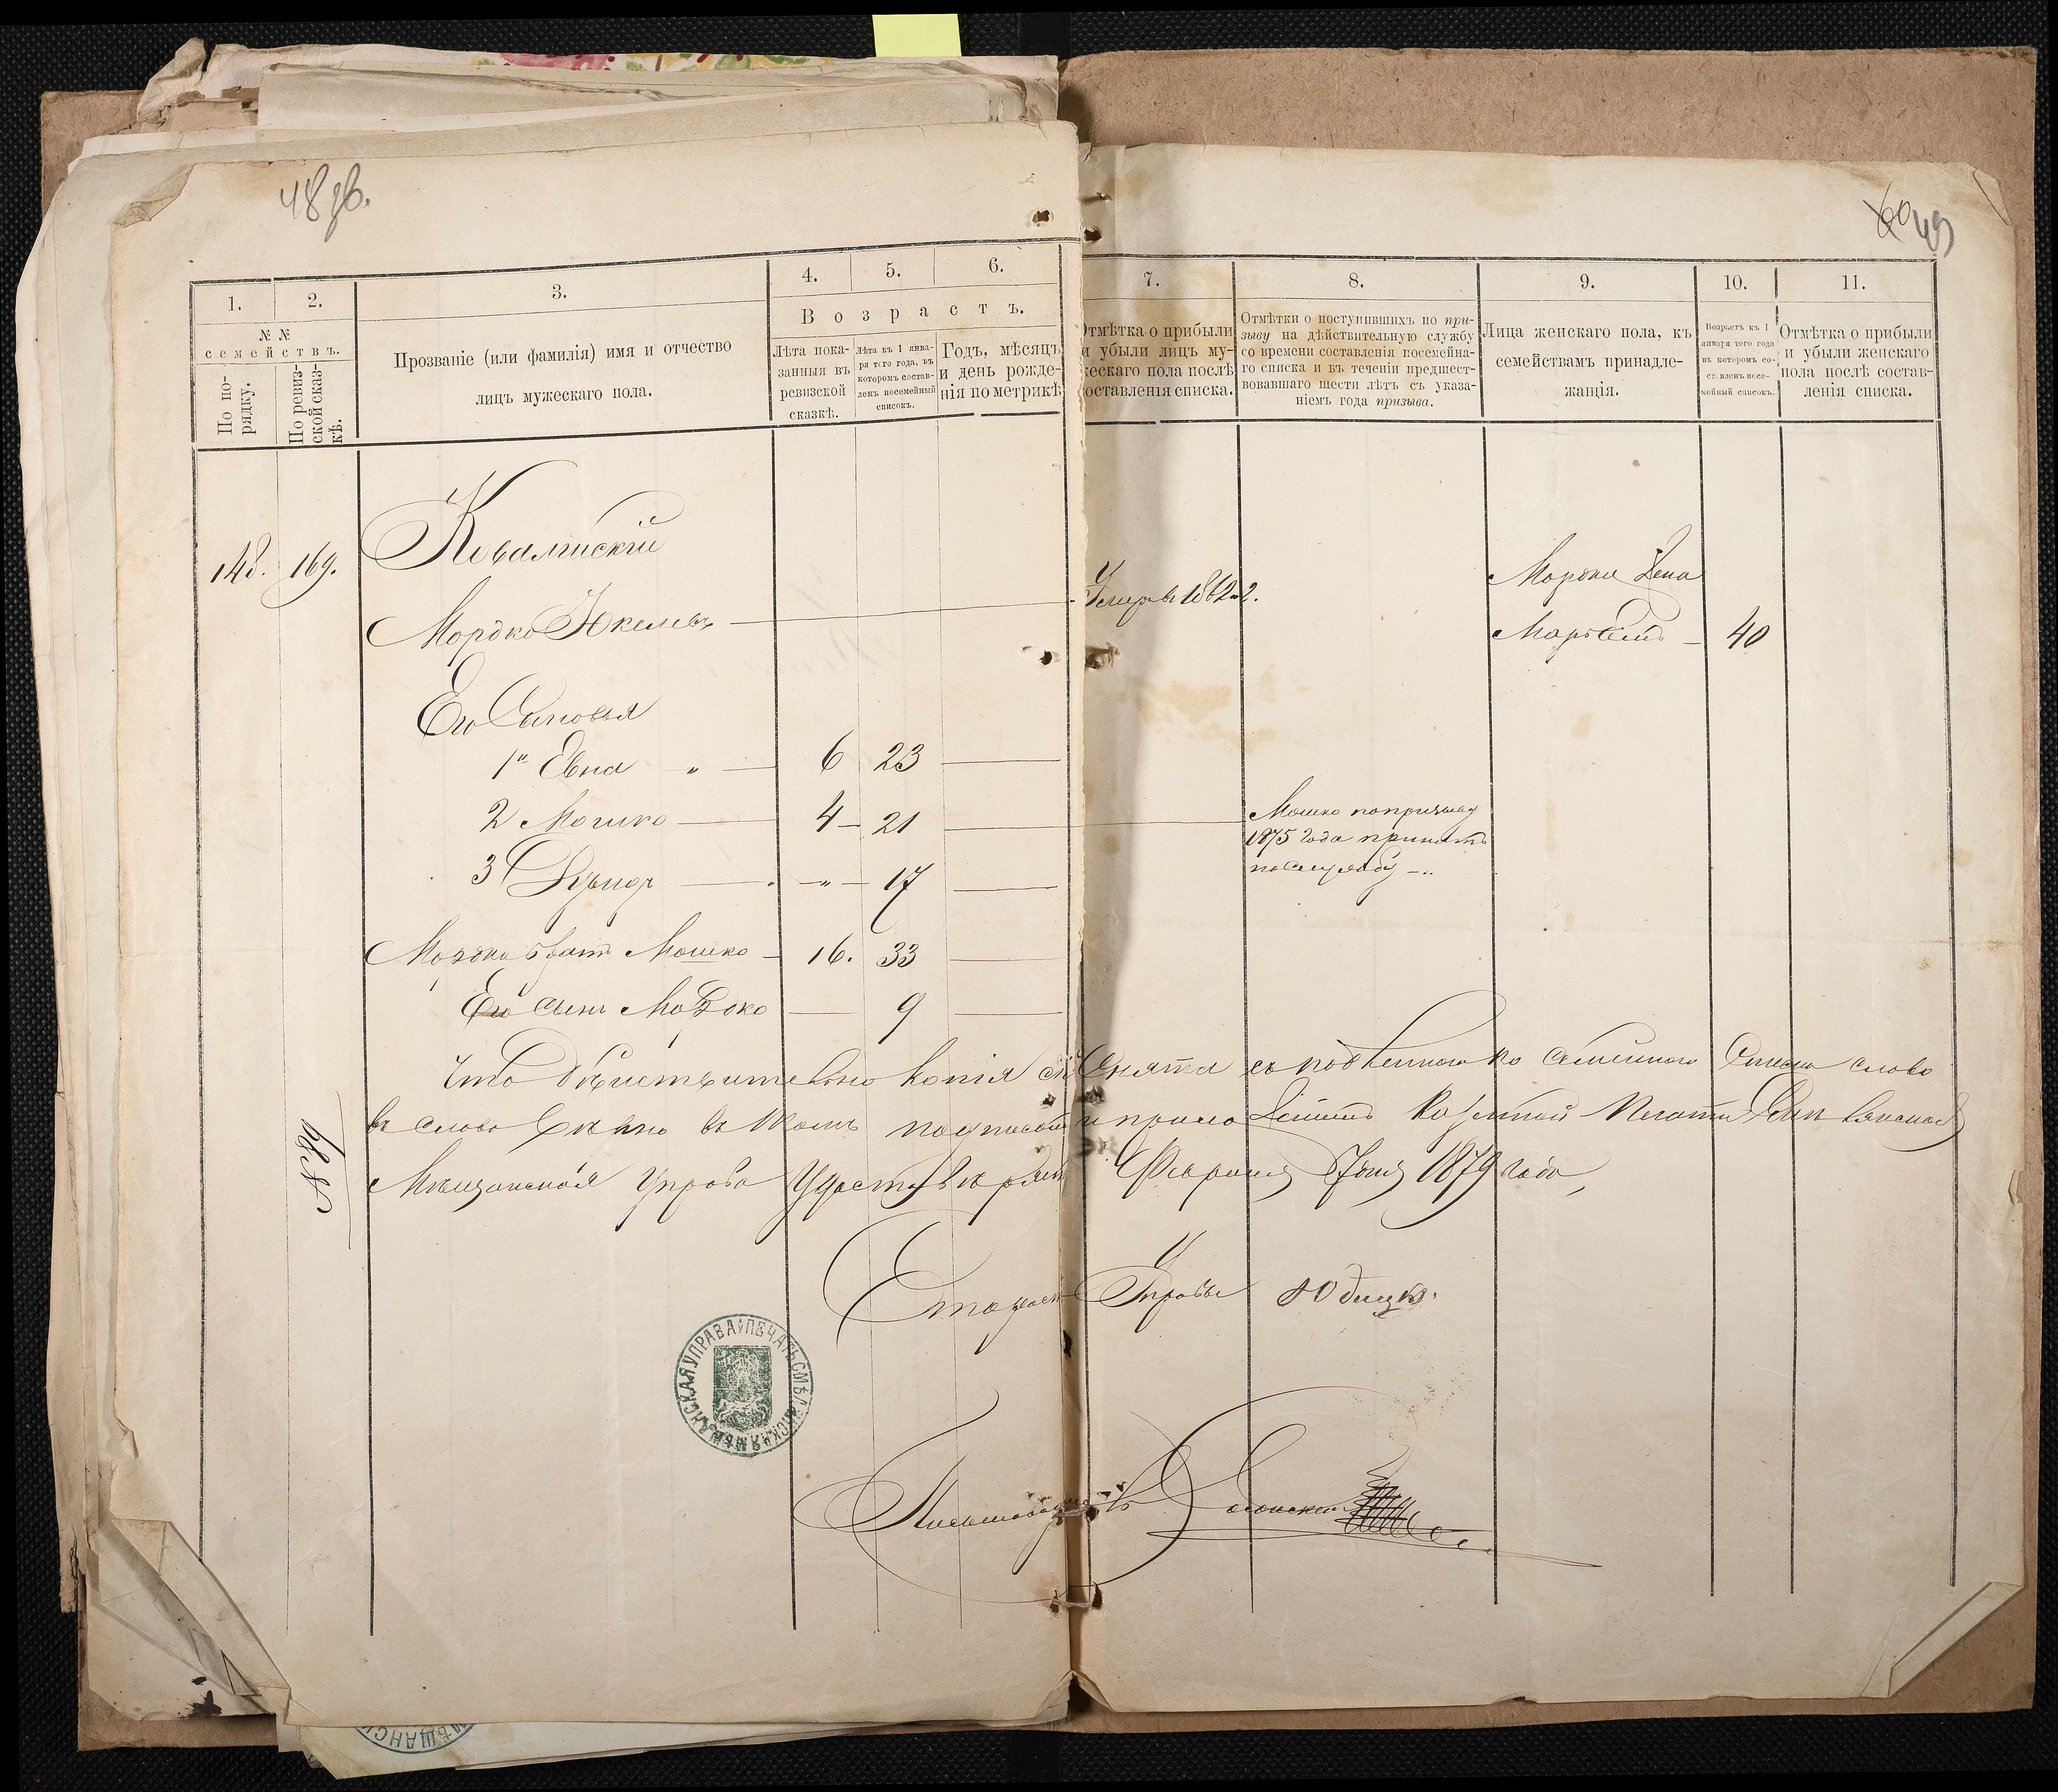 48 об.
60 49
1.
2.
3.
4.
5.
6.
7.
8.
9.
10.
11.
№ №
семействъ.
По по-
рядку.
По ревиз-
ской сказ-
кѣ.
Прозваніе (или фамилія) имя и отчество
лицъ мужескаго пола.
Возрастъ.
Лѣта пока-
занныя въ
ревизской
сказкѣ.
Лѣта къ 1 янва-
ря того года, въ
которомъ состав-
ленъ посемейный
списокъ.
Годъ, мѣсяцъ
и день рожде-
нія по метрикѣ
Отмѣтка о прибыли
и убыли лицъ му-
жескаго пола послѣ
составленія списка.
Отмѣтки о поступившихъ по при-
зыву на дѣйствительную службу
со времени составленія посемейна-
го списка и въ теченіи предшест-
вовавшаго шести лѣтъ съ указа-
ніемъ года призыва.
Лица женскаго пола, къ
семействамъ принадле-
жащія.
Возрастъ къ 1
января того года
въ которомъ со-
ставленъ посе-
мейный списокъ.
Отмѣтка о прибыли
и убыли женскаго
пола послѣ состав-
ленія списка.
148. 169.
Мордко
Умеръ 1862
Мордки Жена
40
Его Сыновья
1" Евна " 6 23
2 Мошко 4 21
Мошко по призыву
1875 года принятъ
на службу
3 " 17
Мордка братъ Мошко 16. 33
Его сынъ Мордко 9
Что дѣйствительно копія сія Снята съ подленного по семейного Списка слово
въ слово вѣрно въ томъ подписомъ и приложеніемъ Казенной Печати
Мѣщанская Управа Удостовѣряетъ Февраля дня 1879 года,
№ 39
Староста Управы
ПЕЧАТЬ СМѢЛЯНСКАЯ МѢЩАНСКАЯ УПРАВА
Письмоводитель
МѢЩАНСК